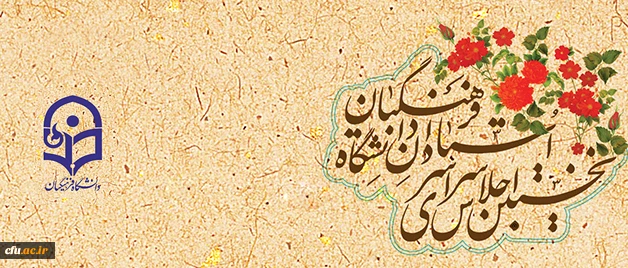 نخستین اجلاس سراسری
استادان دانشگاه
فرهنگیان
دانشگاه فرهنگیان
cfu.ac.ir